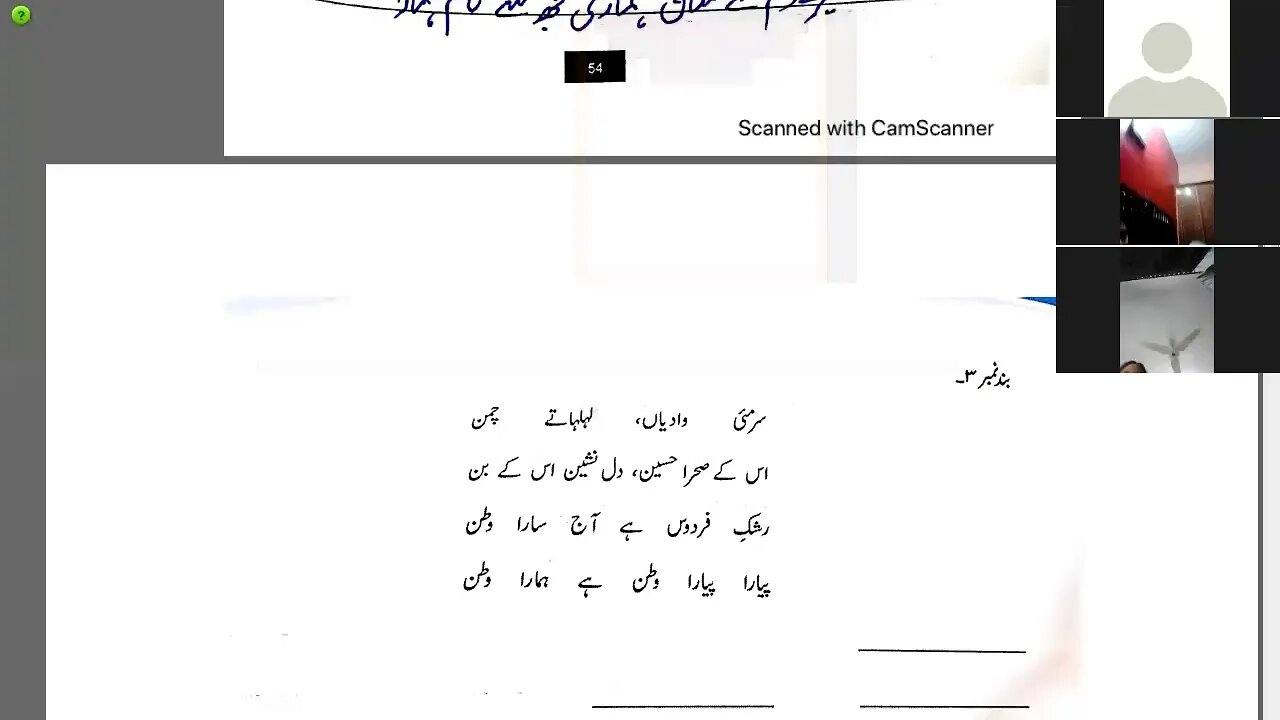 ?
ہماری
54
Scanned with CamScanner
بند نمبر ۳۔
سرمئی وادیاں، لہلہاتے چمن
اس کے صحرا حسین، دل نشین اس کے بن
رشکِ فردوس ہے آج سارا وطن
پیارا پیارا وطن ہے ہمارا وطن